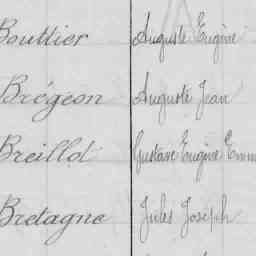 Bouttier Auguste Eugène
Brégeon Auguste Jean
Breillot Gustave Eugène
Bretagne Jules Joseph